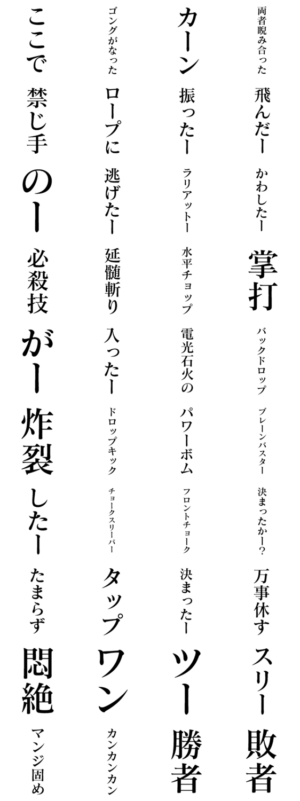 両者睨み合った
飛んだー
かわしたー
掌打
バックドロップ
ブレーンバスター
決まったかー?
万事休す
スリー
敗者
カーン
振ったー
ラリアットー
水平チョップ
電光石火の
パワーボム
フロントチョーク
決まったー
ツー
勝者
ゴングがなった
ロープに
逃げたー
延髄斬り
入ったー
ドロップキック
チョークスリーパー
タップ
ワン
カンカンカン
ここで
禁じ手
のー
必殺技
がー
炸裂
したー
たまらず
悶絶
マンジ固め